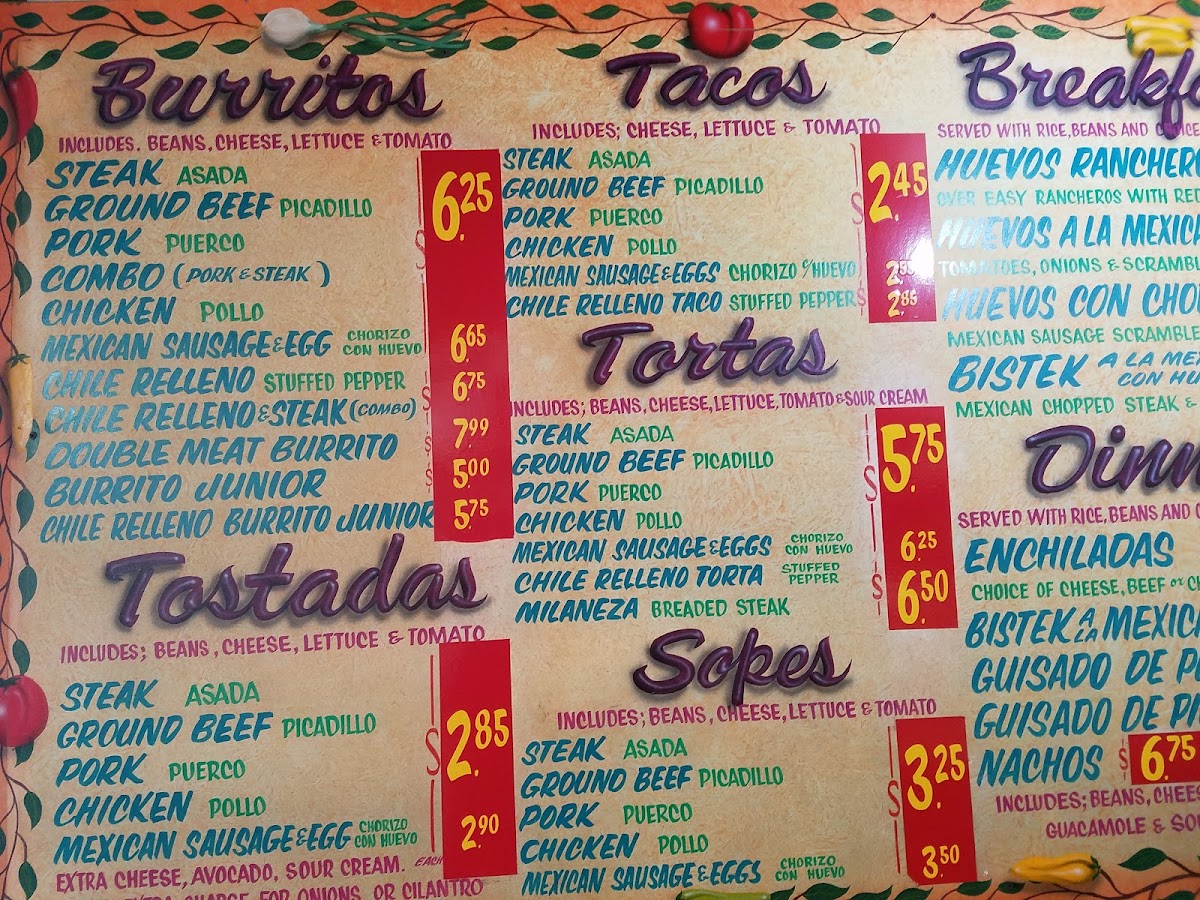 Burritos
INCLUDES. BEANS, CHEESE, LETTUCE & TOMATO
STEAK ASADA
GROUND BEEF PICADILLO
PORK PUERCO
COMBO (PORK & STEAK)
CHICKEN POLLO
$6.25
MEXICAN SAUSAGE & EGG CHORIZO CON HUEVO 6.65
CHILE RELLENO STUFFED PEPPER $6.75
CHILE RELLENO & STEAK (COMBO)
DOUBLE MEAT BURRITO $7.99
BURRITO JUNIOR $5.00
CHILE RELLENO BURRITO JUNIOR 5.75
Tostadas
INCLUDES; BEANS, CHEESE, LETTUCE & TOMATO
STEAK ASADA
GROUND BEEF PICADILLO
PORK PUERCO
CHICKEN POLLO
$2.85
MEXICAN SAUSAGE & EGG CHORIZO CON HUEVO 2.90
EXTRA CHEESE, AVOCADO, SOUR CREAM. EACH
EXTRA CHARGE FOR ONIONS OR CILANTRO
Tacos
INCLUDES; CHEESE, LETTUCE & TOMATO
STEAK ASADA
GROUND BEEF PICADILLO
PORK PUERCO
CHICKEN POLLO
$2.45
MEXICAN SAUSAGE & EGGS CHORIZO C/HUEVO
CHILE RELLENO TACO STUFFED PEPPER $2.85
Tortas
INCLUDES; BEANS, CHEESE, LETTUCE, TOMATO & SOUR CREAM
STEAK ASADA
GROUND BEEF PICADILLO
PORK PUERCO
CHICKEN POLLO
$5.75
MEXICAN SAUSAGE & EGGS CHORIZO CON HUEVO 6.25
CHILE RELLENO TORTA STUFFED PEPPER
MILANEZA BREADED STEAK
$6.50
Sopes
INCLUDES; BEANS, CHEESE, LETTUCE & TOMATO
STEAK ASADA
GROUND BEEF PICADILLO
PORK PUERCO
CHICKEN POLLO
$3.25
MEXICAN SAUSAGE & EGGS CHORIZO CON HUEVO 3.50
Breakf
SERVED WITH RICE, BEANS AND CHOICE
HUEVOS RANCHERO
OVER EASY RANCHEROS WITH RED
HUEVOS A LA MEXIC
TOMATOES, ONIONS & SCRAMBL
HUEVOS CON CHO
MEXICAN SAUSAGE SCRAMBLE
BISTEK A LA ME
CON HU
MEXICAN CHOPPED STEAK &
Dinn
SERVED WITH RICE, BEANS AND
ENCHILADAS
CHOICE OF CHEESE, BEEF or CH
BISTEK A LA MEXIC
GUISADO DE P
GUISADO DE P
NACHOS $6.75
INCLUDES; BEANS, CHEES
GUACAMOLE & SO